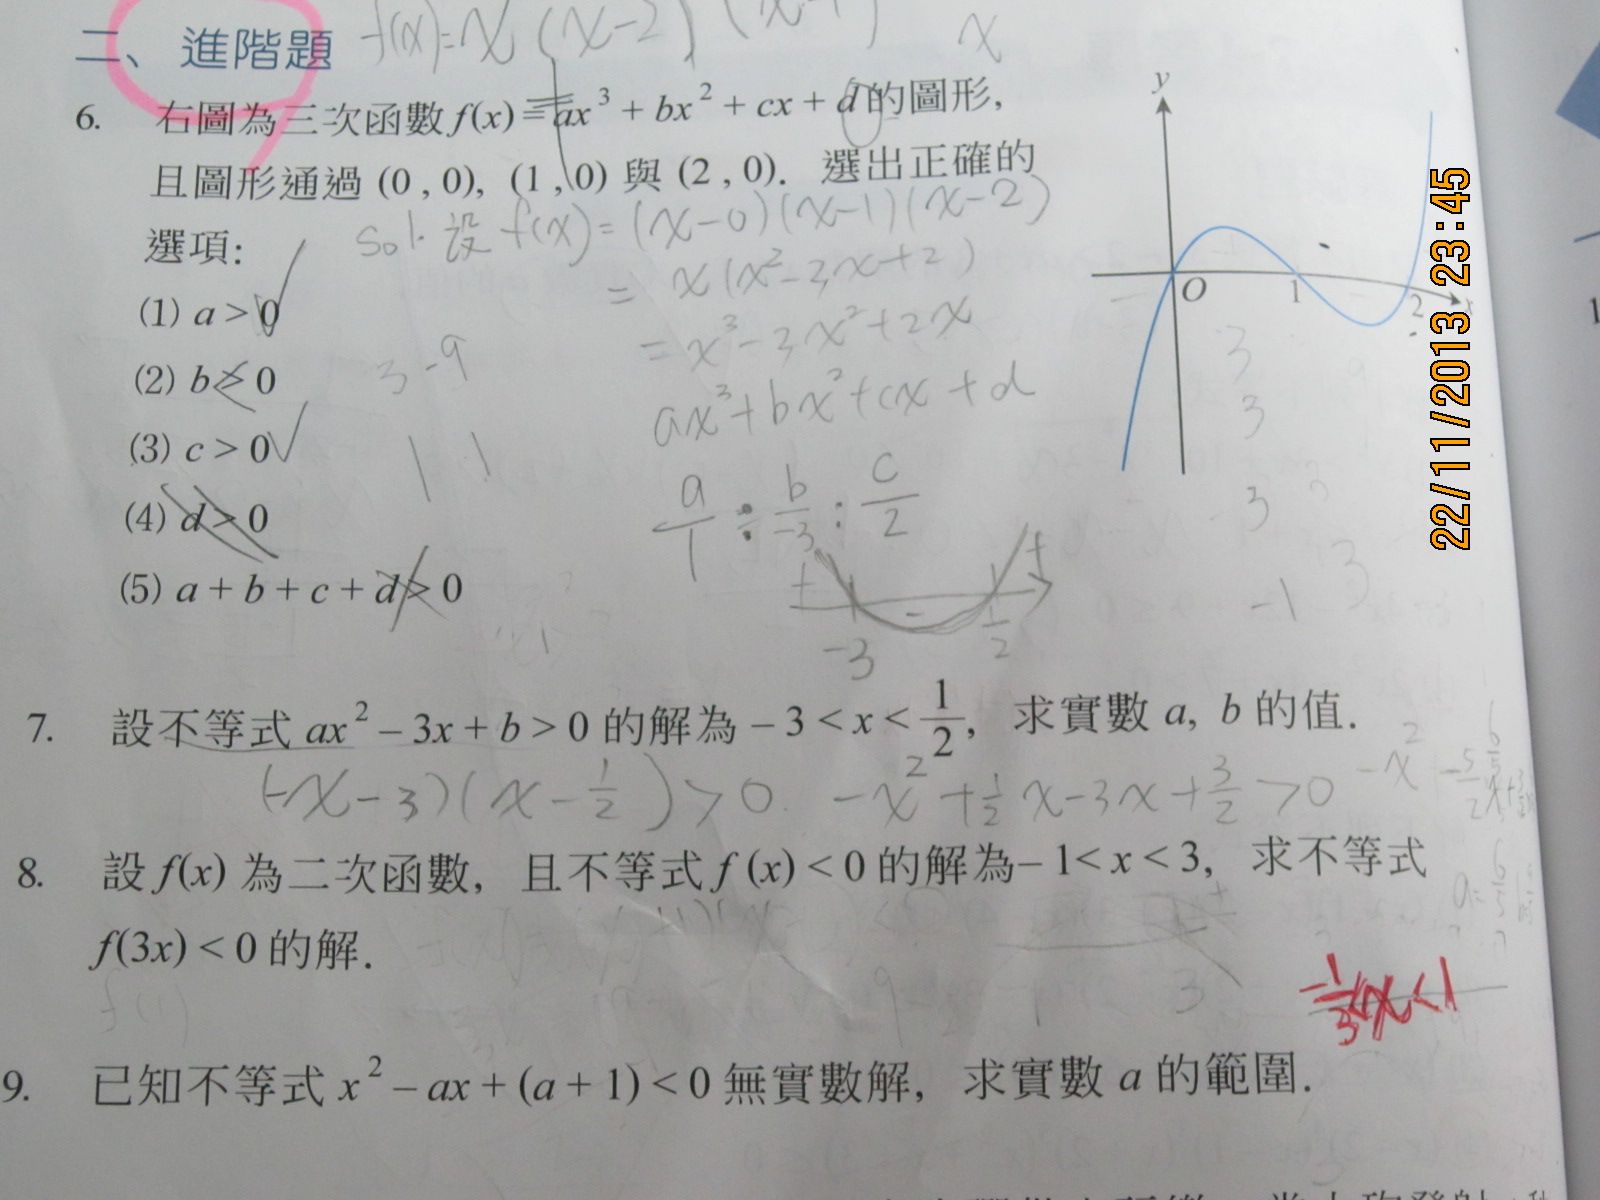 f(x)=x(x-2)
x
二、進階題
6. 右圖為三次函數 f(x) = ax³ + bx² + cx + d 的圖形,
且圖形通過 (0 , 0), (1 , 0) 與 (2 , 0). 選出正確的
選項:
sol. 設 f(x) = (x-0)(x-1)(x-2)
= x(x²-3x+2)
= x³-3x²+2x
ax³+bx²+cx+d
(1) a > 0
(2) b > 0
3 -9
(3) c > 0
(4) d > 0
a/1 : b/-3 : c/2
(5) a + b + c + d > 0
+ - +
-3 1/2
y
O 1 2 x
3
3
3
-1 3
22/11/2013 23:45
7. 設不等式 ax² – 3x + b > 0 的解為 – 3 < x < 1/2, 求實數 a, b 的值.
(-x-3)(x-1/2)>0. -x²+1/2x-3x+3/2>0
8. 設 f(x) 為二次函數, 且不等式 f (x) < 0 的解為– 1< x < 3, 求不等式
f(3x) < 0 的解.
f(1)
-1/3<x<1
9. 已知不等式 x² – ax + (a + 1) < 0 無實數解, 求實數 a 的範圍.